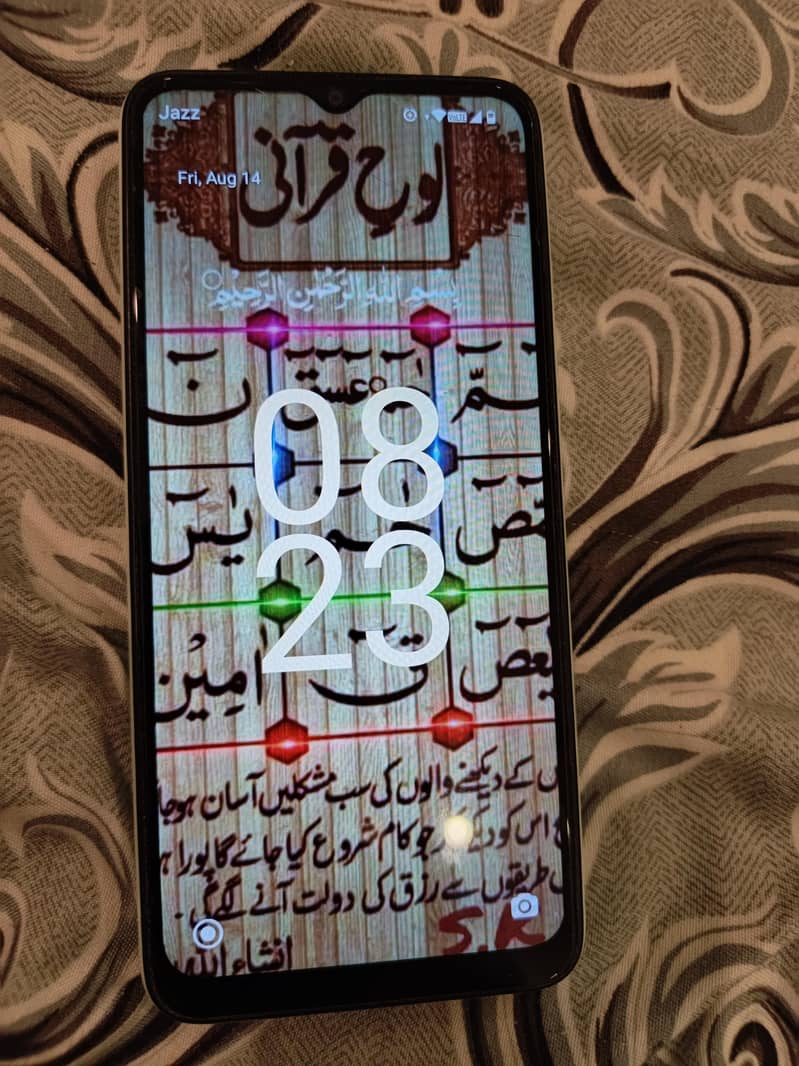 Jazz
VoLTE
Fri, Aug 14
لوحِ قرآنی
بِسْمِ اللهِ الرَّحْمٰنِ الرَّحِيْمِ
عٓسٓقٓ نٓ
08
صٓ حٰمٓ يٰسٓ
23
قٓ اٰمِيْن
کے دیکھنے والوں کی سب مشکلیں آسان ہوجا
اس کو جو کام شروع کیا جائے گا پورا
طریقوں سے رزق کی دولت آنے لگے گی۔
انشاء اللہ
S.K